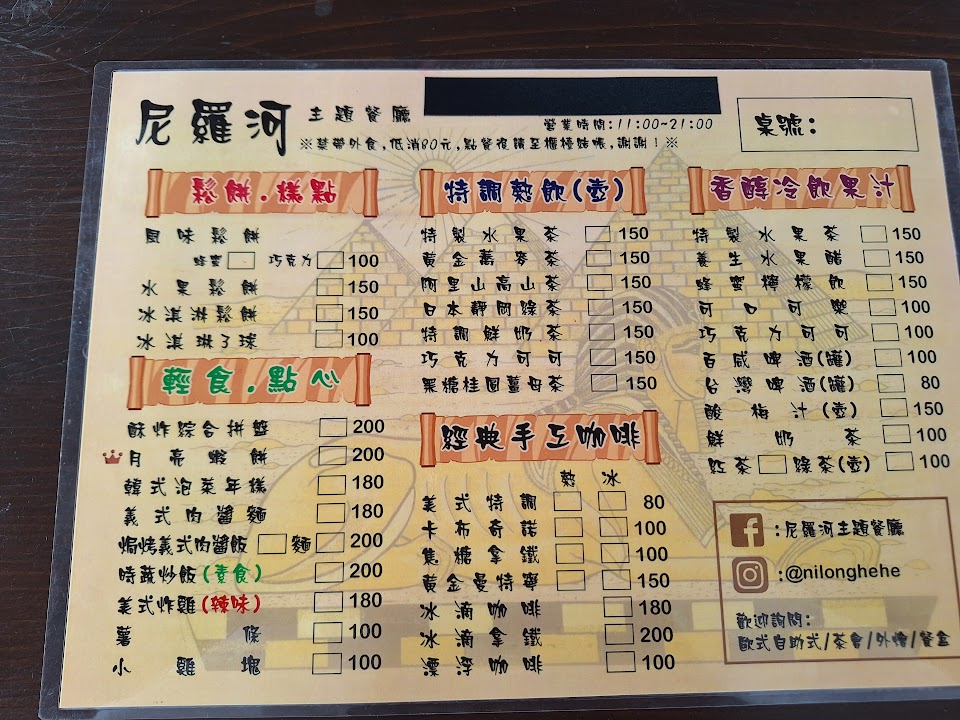 尼羅河 主題餐廳
營業時間:11:00~21:00
※禁帶外食,低消80元,點餐後請至櫃檯結帳,謝謝!※
桌號:
鬆餅.糕點
風味鬆餅
蜂蜜 巧克力 100
水果鬆餅 150
冰淇淋鬆餅 150
冰淇琳3球 100
輕食.點心
酥炸綜合拼盤 200
月亮蝦餅 200
韓式泡菜年糕 180
義式肉醬麵 180
焗烤義式肉醬飯 麵 200
時蔬炒飯(素食) 200
美式炸雞(辣味) 180
薯條 100
小雞塊 100
特調熱飲(壺)
特製水果茶 150
黃金蕎麥茶 150
阿里山高山茶 150
日本靜岡綠茶 150
特調鮮奶茶 150
巧克力可可 150
黑糖桂圓薑母茶 150
經典手工咖啡
熱 冰
美式特調 80
卡布奇諾 100
焦糖拿鐵 100
黃金曼特寧 150
冰滴咖啡 180
冰滴拿鐵 200
漂浮咖啡 100
香醇冷飲果汁
特製水果茶 150
養生水果醋 150
蜂蜜檸檬飲 150
可口可樂 100
巧克力可可 100
百威啤酒(罐) 100
台灣啤酒(罐) 80
酸梅汁(壺) 150
鮮奶茶 100
紅茶 綠茶(壺) 100
:尼羅河主題餐廳
:@nilonghehe
歡迎詢問:
歐式自助式/茶會/外燴/餐盒